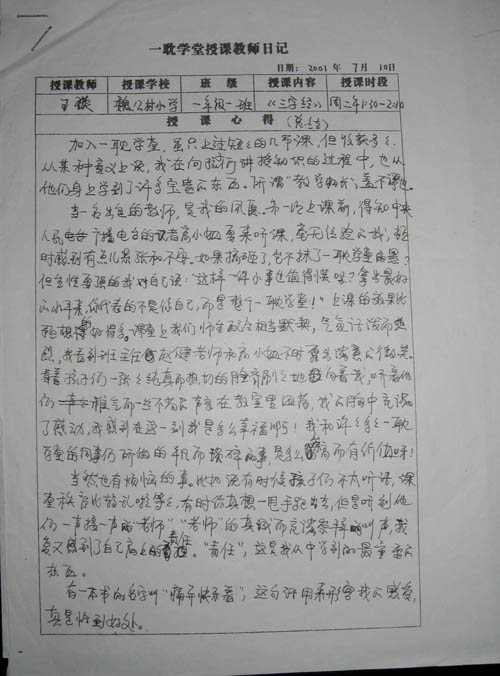 一耽学堂授课教师日记
日期：2001 年 7 月 10日
授课教师 授课学校 班 级 授课内容 授课时段
王 村小学 一年级一班 《三字经》 周二午1:30-2:10
授 课 心 得 （总结）
加入一耽学堂，虽只上过短短的几节课，但收获多多。
从某种意义上说，我在向孩子们讲授知识的过程中，也从
他们身上学到了许多宝贵的东西。所谓“教学相长”，盖不谬也。
当一名出色的教师，是我的夙愿。第一次上课前，得知中央
人民广播电台的记者高小姐要来听课，毫无经验的我，顿
时感到有点儿紧张和不安。如果搞砸了，岂不抹了一耽学堂的黑？
但生性要强的我对自己说：“这样一件小事也值得慌吗？拿出最好
的水平来，你代表的不是你自己，而是整个一耽学堂！”上课的效果比
想象的好得多。课堂上我们师生配合相当默契，气氛活泼而热
烈，我看到班主任赵健老师和高小姐不时露出满意的微笑。
看着孩子们一张张纯真而热切的脸齐刷刷地向着我，听着他
们稚气而一丝不苟的声音在教室里回荡，我的胸中充满
了感动，我感到在这一刻我是多么幸福啊！我和许许多多一耽
学堂的同事们所做的平凡而琐碎的事，是多么崇高而有价值呀！
当然也有烦恼的事。比如说有时候孩子们不太听话，课
堂秩序比较乱啦等等，有时你真想一甩手跑出去，但是听到他
们一声接一声的“老师”，“老师”的真诚而充满崇拜的叫声，我
又感到了自己肩上的责任。“责任”，这是我从中学到的最宝贵的
东西。
有一本书的名字叫“痛并快乐着”，这句话用来形容我的感受，
真是恰到好处。